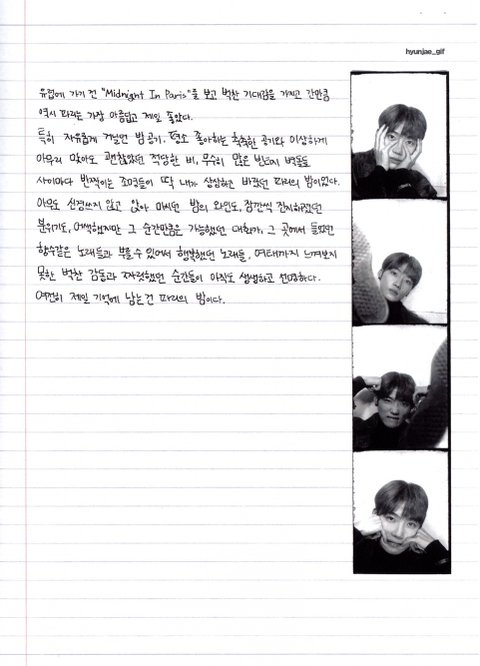 hyunjae_gif
유럽에 가기 전 "Midnight In Paris"를 보고 벅찬 기대감을 가지고 간만큼
역시 파리는 가장 아름답고 제일 좋았다.
특히 자유롭게 거닐던 밤공기, 평소 좋아하는 축축한 공기와 이상하게
아무리 맞아도 괜찮았던 적당한 비, 무수히 많은 빈티지 벽돌들
사이마다 반짝이는 조명들이 딱 내가 상상하고 바랬던 파리의 밤이었다.
아무도 신경쓰지 않고 앉아 마시던 밤의 와인도, 잠깐씩 진지하졌던
분위기도, 어색했지만 그 순간만큼은 가능했던 대화가, 그 곳에서 들었던
향수같은 노래들과 부를 수 있어서 행복했던 노래들, 여태까지 느껴보지
못한 벅찬 감동과 짜릿했던 순간들이 아직도 생생하고 선명하다.
여전히 제일 기억에 남는 건 파리의 밤이다.